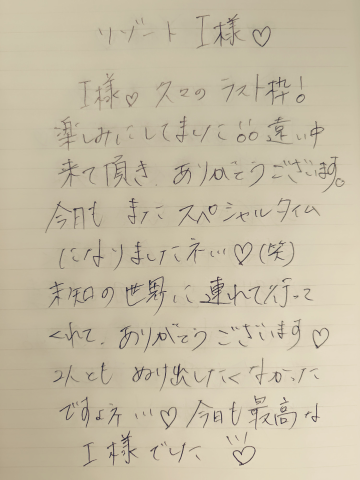 リゾート I様♡
I様♡ 久々のラスト枠!
楽しみにしてました!! 遠い中
来て頂き、ありがとうございます。
今日も またスペシャルタイム
になりましたネ!!♡(笑)
未知の世界に連れて行って
くれて、ありがとうございます♡
2人とも ぬけ出したくなかった
ですよネ!!♡ 今日も最高な
I様でした♡